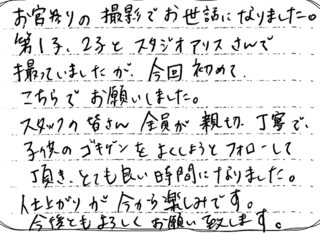 お宮参りの撮影でお世話になりました。
第1子、2子とスタジオアリスさんで
撮っていましたが、今回初めて
こちらでお願いしました。
スタッフの皆さん全員が親切、丁寧で、
子供のゴキゲンをよくしようとフォローして
頂き、とても良い時間になりました。
仕上がりが今から楽しみです。
今後ともよろしくお願い致します。